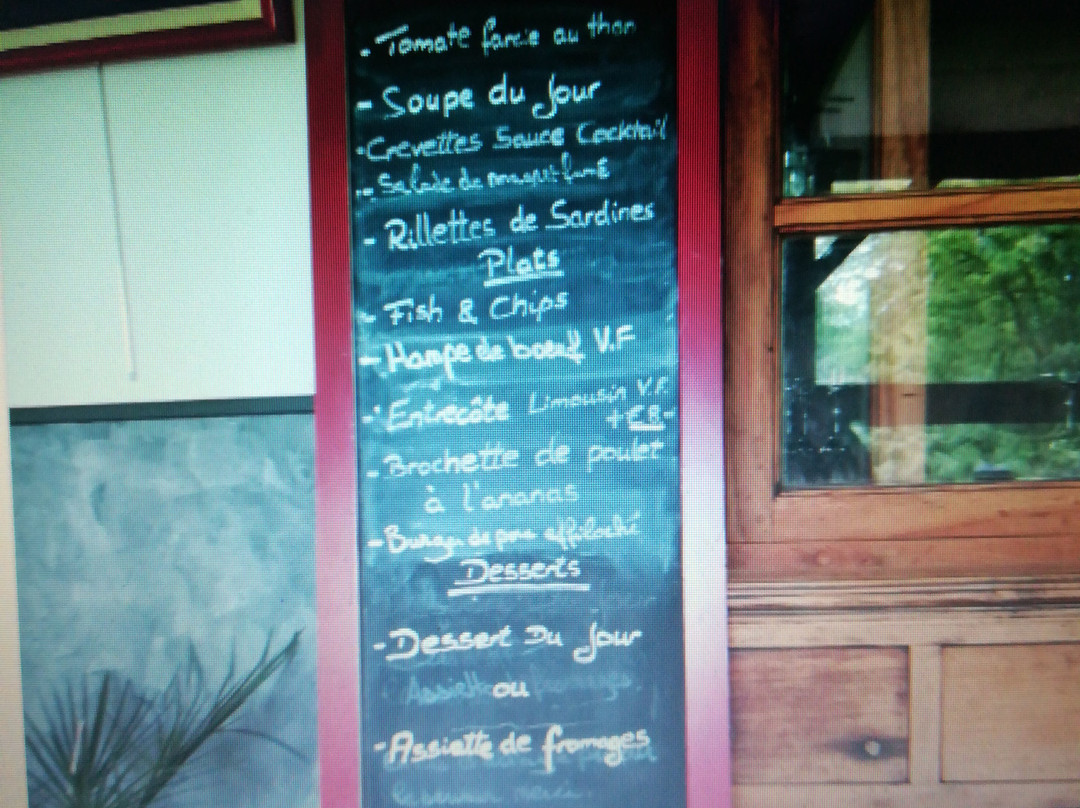 - Tomate farcie au thon
- Soupe du Jour
- Crevettes Sauce Cocktail
- Salade de fumé
- Rillettes de Sardines
Plats
- Fish & Chips
- Hampe de boeuf V.F
- Entrecôte Limousin V.F.
+€8-
- Brochette de poulet
à l'ananas
- Burger de porc effiloché
Desserts
- Dessert Du Jour
Assiette ou fromages.
- Assiette de fromages